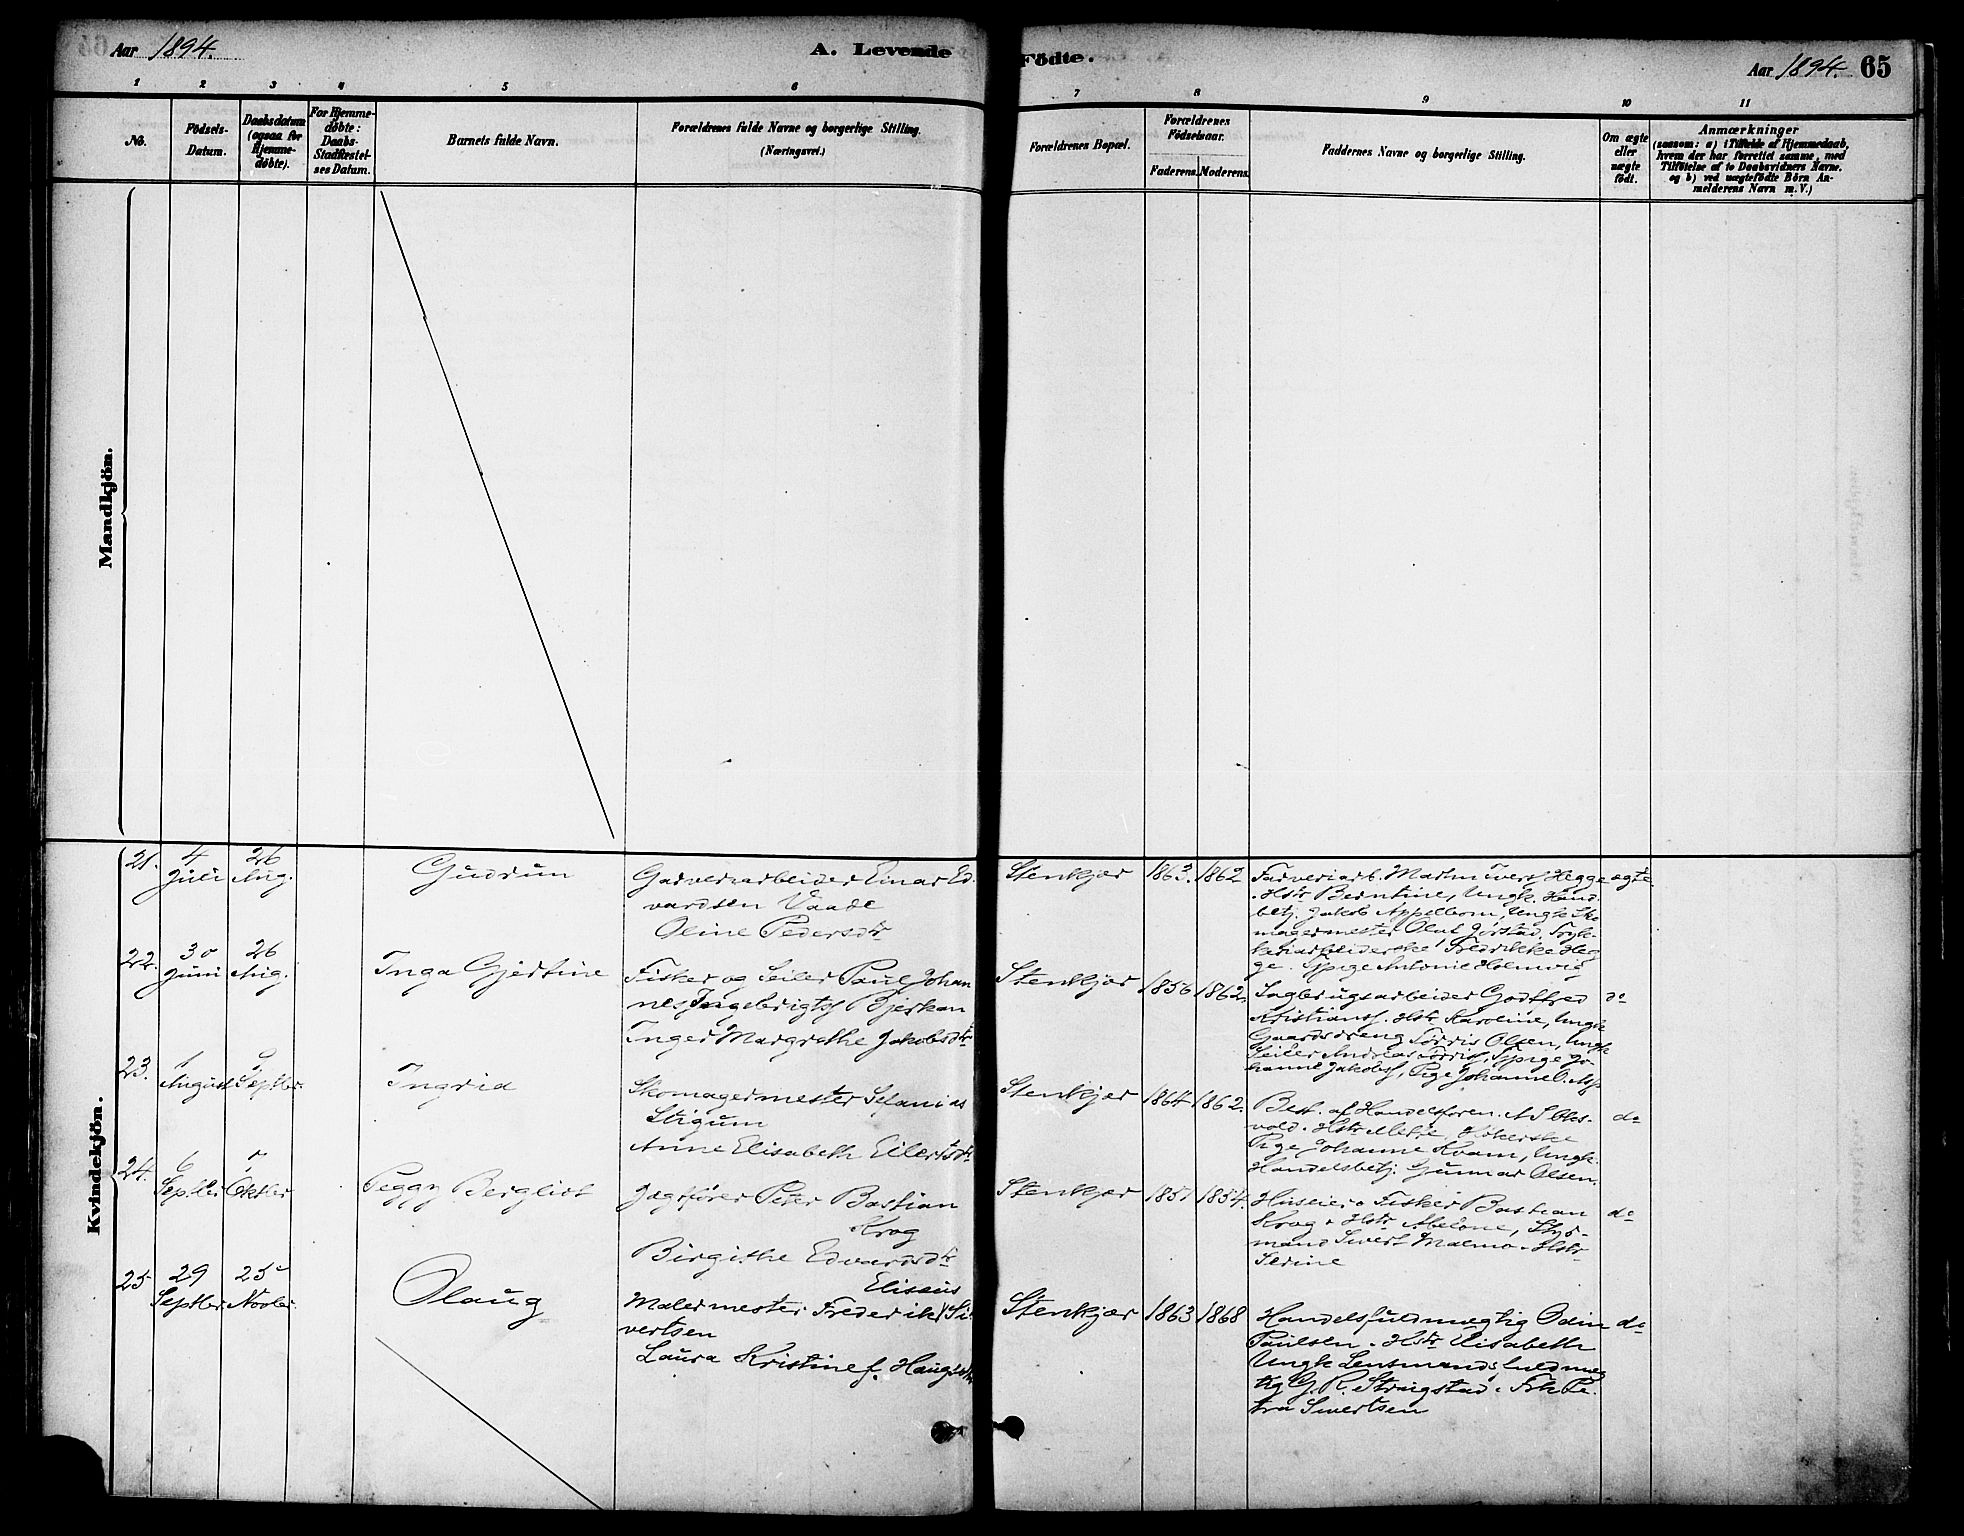 Aar 1894.
A. Levende
Födte.
Aar 1894. 65
1 2 3 4 5 6 7 8 9 10 11
No.
Födsels-
Datum.
Daabsdatum
(ogsaa for
Hjemme-
döbte).
For Hjemme-
döbte:
Daabs-
Stadfæstel-
ses Datum.
Barnets fulde Navn.
Forældrenes fulde Navne og borgerlige Stilling.
(Næringsvei.)
Forældrenes Bopæl.
Forældrenes
Födselsaar.
Faderens. Moderens.
Faddernes Navne og borgerlige Stilling.
Om ægte
eller
uægte
födt.
Anmærkninger
(saasom: a) i Tilfælde af Hjemmedaab,
hvem der har forrettet samme, med
Tilföielse af to Daabsvidners Navne.
og b) ved uægtefödte Börn An-
melderens Navn m. V.)
Mandkjön.
Kvindekjön.
21.
4
Juli
26
Aug.
Gudrun
Garveriarbeider Einar Ed-
vardsen Vaade
Oline Pedersdtr
Stenkjær 1863. 1862
Farveriarb. Martin Ivers. Hegge
. Hstr Berntine, Ungk. Hand.
betj. Jakob Appelbom, Ungk Sko
magermester Oluf Gjørstad,
Fredrikke Heg
ge. Pige Antonie Holmvig
ægte.
22.
30
Juni
26
Aug.
Inga Gjertine
Fisker og Seiler Paul Johan
nes Ingebrigts. Bjerkan
Inger Margrethe Jakobsdtr
Stenkjær 1856 1862.
Sagbrugsarbeider Godtfred
Kristians. Hstr Karoline, Ungk
Gaardsdreng Tørris Olsen, Ungk
Seiler Andreas Tørris., Pige Jo-
hanne Jakobs., Pige Johanne O.
do
23.
1
August
Septbr.
Ingrid
Skomagermester Sefanias
Stigum
Anne Elisabeth Eilertsdtr
Stenkjær 1864 1862.
Best. af Handelsforen. A S
vold. Hstr Mette, Høkerske
Pige Johanne Kvam, Ungk.
Handelsbetj. Gunnar Olsen.
do
24.
6
Septbr
7
Oktbr
Peggy Bergliot
Jægtfører Peter Bastian
Krog
Birgithe Edvardsdtr
Stenkjær 1851 1854.
Huseier o Fisker Bastian
Krog & Hstr Abelone, Styr-
mand Sivert Malmo. Hstr
Serine
do
25
29
Septbr
25
Novbr.
Olaug
Eliseus
Malermester Frederik Si-
vertsen
Laura Kristine f. Haugs
Stenkjær 1863 1868
Handelsfuldmægtig Odin
Paulsen. Hstr Elisabeth
Ungk Lensmandsfuldmæg
tig G. R. Stringstad. Frk Pe-
tra Sivertsen
do